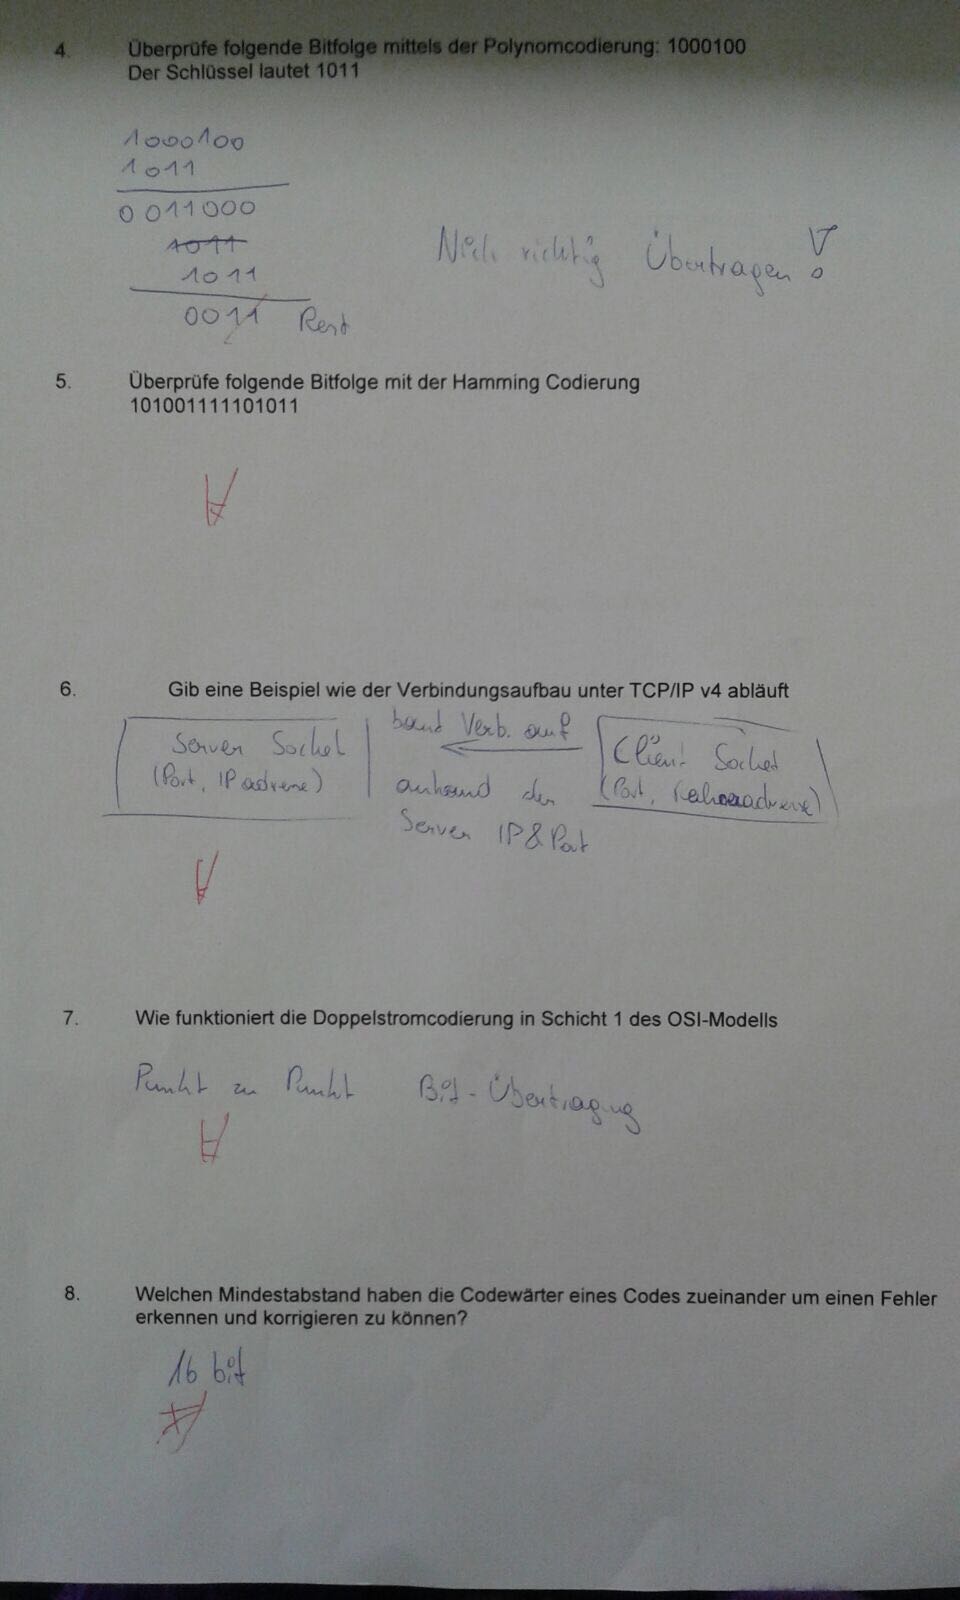 4. Überprüfe folgende Bitfolge mittels der Polynomcodierung: 1000100
Der Schlüssel lautet 1011
1000100
1011
0011000
1011
1011
0011 Rest
Nich richtig Übertragen!
5. Überprüfe folgende Bitfolge mit der Hamming Codierung
101001111101011
6. Gib eine Beispiel wie der Verbindungsaufbau unter TCP/IP v4 abläuft
Server Socket
(Port, IP adresse)
baut Verb. auf
anhand der
Server IP & Port
Client Socket
(Port,
7. Wie funktioniert die Doppelstromcodierung in Schicht 1 des OSI-Modells
Punkt zu Punkt Bit-Übertragung
8. Welchen Mindestabstand haben die Codewärter eines Codes zueinander um einen Fehler
erkennen und korrigieren zu können?
16 bit